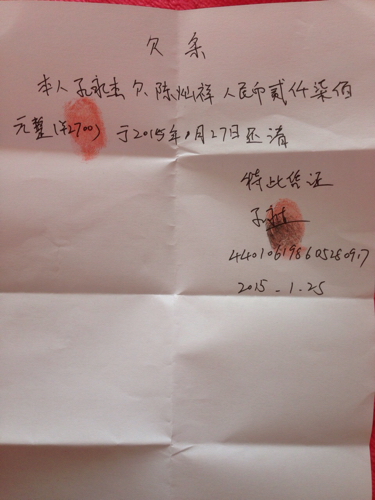 欠条
本人孔永杰欠陈灿祥人民币贰仟柒佰
元整(¥2700)于2015年1月27日还清
特此凭证
孔永杰
440106198605280917
2015.1.25